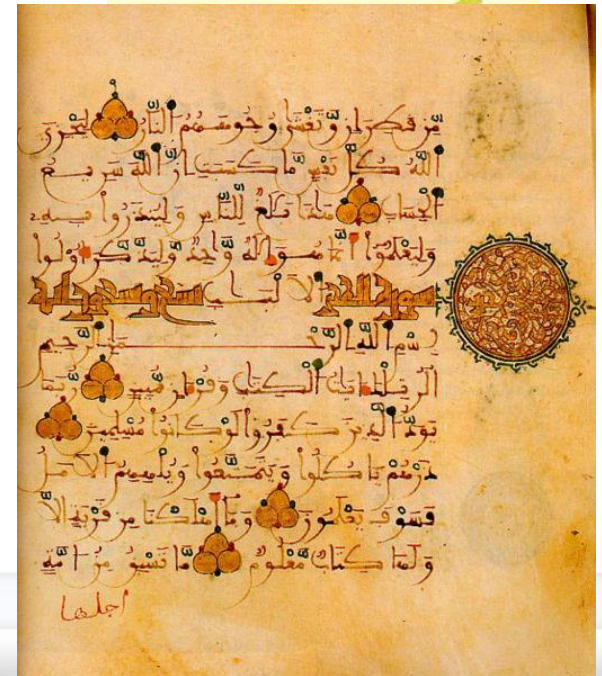 مِّن قَطِرَانٍ وَّتَغْشَىٰ وُجُوهَهُمُ النَّارُ لِيَجْزِيَ
اللَّهُ كُلَّ نَفْسٍ مَّا كَسَبَتْ إِنَّ اللَّهَ سَرِيعُ
الْحِسَابِ هَٰذَا بَلَٰغٌ لِّلنَّاسِ وَلِيُنذَرُوا بِهِ
وَلِيَعْلَمُوا أَنَّمَا هُوَ إِلَٰهٌ وَّاحِدٌ وَّلِيَذَّكَّرَ أُوْلُوا
سورة الحجر الْأَلْبَٰبِ تسع وتسعون آية
بِسْمِ اللَّهِ الرَّحْمَٰنِ الرَّحِيمِ
الٓر تِلْكَ ءَايَٰتُ الْكِتَٰبِ وَقُرْءَانٍ مُّبِينٍ رُّبَمَا
يَوَدُّ الَّذِينَ كَفَرُوا لَوْ كَانُوا مُسْلِمِينَ
ذَرْهُمْ يَأْكُلُوا وَيَتَمَتَّعُوا وَيُلْهِهِمُ الْأَمَلُ
فَسَوْفَ يَعْلَمُونَ وَمَا أَهْلَكْنَا مِن قَرْيَةٍ إِلَّا
وَلَهَا كِتَابٌ مَّعْلُومٌ مَّا تَسْبِقُ مِنْ أُمَّةٍ
اجلها